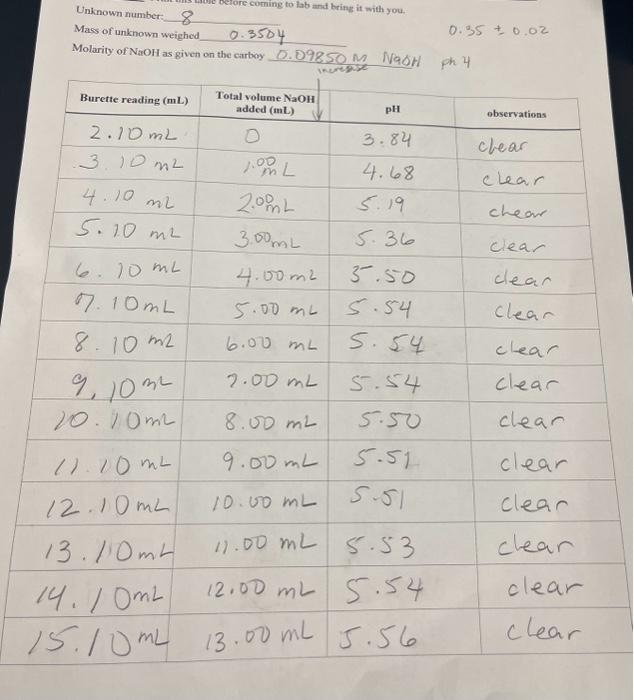 before coming to lab and bring it with you.
Unknown number: 8
Mass of unknown weighed 0.3504 0.35 ± 0.02
Molarity of NaOH as given on the carboy 0.09850 M NaOH ph 4
increase
Burette reading (mL) Total volume NaOH added (mL) pH observations
2.10 mL 0 3.84 clear
3.10 mL 1.00 mL 4.68 clear
4.10 mL 2.00 mL 5.19 clear
5.10 mL 3.00 mL 5.36 clear
6.10 mL 4.00 mL 5.50 clear
7.10 mL 5.00 mL 5.54 clear
8.10 mL 6.00 mL 5.54 clear
9.10 mL 7.00 mL 5.54 clear
10.10 mL 8.00 mL 5.50 clear
11.10 mL 9.00 mL 5.51 clear
12.10 mL 10.00 mL 5.51 clear
13.10 mL 11.00 mL 5.53 clear
14.10 mL 12.00 mL 5.54 clear
15.10 mL 13.00 mL 5.56 clear